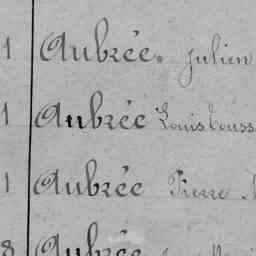 1 Aubrée. Julien
1 Aubrée Louis Touss
1 Aubrée Pierre
8 Aubrée